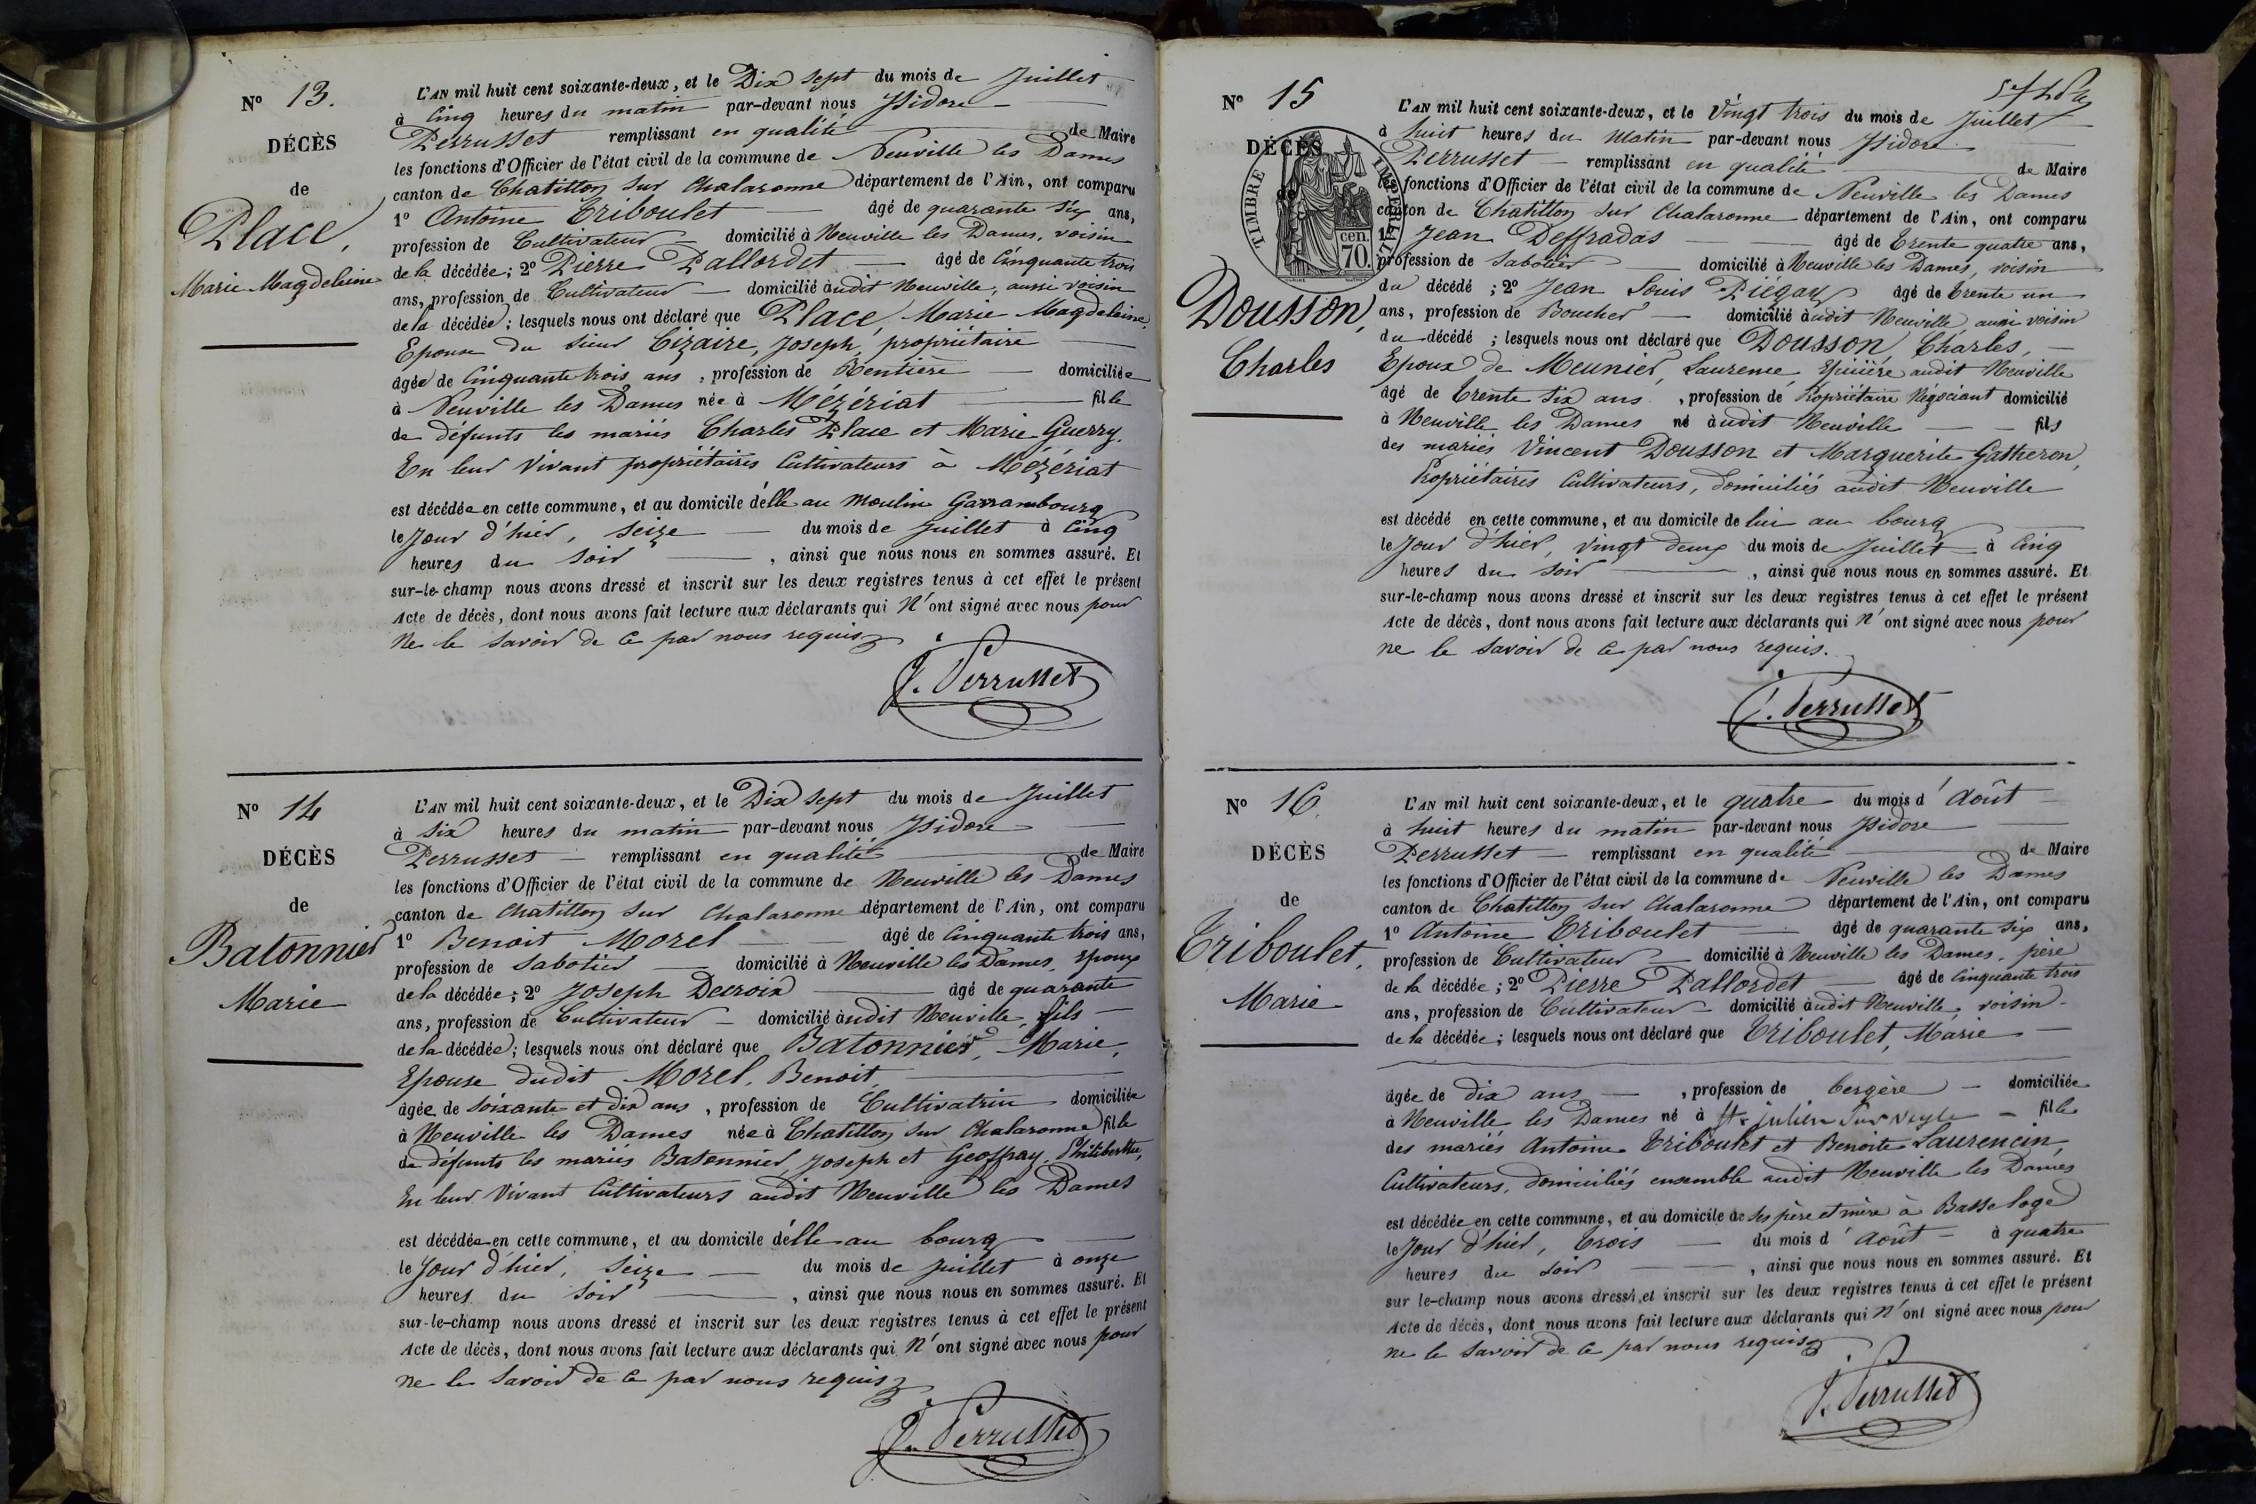 N° 13.
DÉCÈS
de
Place,
Marie Magdeleine
L'AN mil huit cent soixante-deux, et le Dix sept du mois de Juillet
à Cinq heures du matin par-devant nous Isidore
Perrusset remplissant en qualité de Maire
les fonctions d'Officier de l'état civil de la commune de Neuville les Dames
canton de Chatillon sur Chalaronne département de l'Ain, ont comparu
1° Antoine Triboulet âgé de quarante six ans,
profession de Cultivateur domicilié à Neuville les Dames, voisin
de la décédée; 2° Pierre Pallordet âgé de Cinquante trois
ans, profession de Cultivateur domicilié audit Neuville, aussi voisin
de la décédée; lesquels nous ont déclaré que Place, Marie Magdeleine,
Epouse du sieur Cizaire, Joseph, propriétaire
âgée de Cinquante trois ans, profession de Rentière domiciliée
à Neuville les Dames née à Mézériat fille
de défunts les mariés Charles Place et Marie Guerry.
En leur Vivant propriétaires Cultivateurs à Mézériat
est décédée en cette commune, et au domicile d'elle au Moulin Garrambourg
le Jour d'hier, seize du mois de Juillet à Cinq
heures du soir, ainsi que nous nous en sommes assuré. Et
sur-le-champ nous avons dressé et inscrit sur les deux registres tenus à cet effet le présent
Acte de décès, dont nous avons fait lecture aux déclarants qui n'ont signé avec nous pour
ne le savoir de ce par nous requis
J. Perrusset
N° 14
DÉCÈS
de
Batonnier
Marie
L'AN mil huit cent soixante-deux, et le Dix sept du mois de Juillet
à six heures du matin par-devant nous Isidore
Perrusset remplissant en qualité de Maire
les fonctions d'Officier de l'état civil de la commune de Neuville les Dames
canton de Chatillon sur Chalaronne département de l'Ain, ont comparu
1° Benoit Morel âgé de Cinquante trois ans,
profession de Sabotier domicilié à Neuville les Dames, Epoux
de la décédée; 2° Joseph Decroix âgé de quarante
ans, profession de Cultivateur domicilié audit Neuville, fils
de la décédée; lesquels nous ont déclaré que Batonnier, Marie,
Epouse dudit Morel, Benoit,
âgée de soixante et dix ans, profession de Cultivatrice domiciliée
à Neuville les Dames née à Chatillon sur Chalaronne fille
de défunts les mariés Batonnier, Joseph et Geoffray, Philiberthe,
En leur Vivant Cultivateurs audit Neuville les Dames
est décédée en cette commune, et au domicile d'elle au bourg
le Jour d'hier, seize du mois de Juillet à onze
heures du soir, ainsi que nous nous en sommes assuré. Et
sur-le-champ nous avons dressé et inscrit sur les deux registres tenus à cet effet le présent
Acte de décès, dont nous avons fait lecture aux déclarants qui n'ont signé avec nous pour
ne le savoir de ce par nous requis
J. Perrusset
N° 15
DÉCÈS
de
TIMBRE IMPÉRIAL
70 cen.
Dousson,
Charles
L'AN mil huit cent soixante-deux, et le Vingt trois du mois de Juillet
à huit heures du Matin par-devant nous Isidore
Perrusset remplissant en qualité de Maire
les fonctions d'Officier de l'état civil de la commune de Neuville les Dames
canton de Chatillon sur Chalaronne département de l'Ain, ont comparu
1° Jean Deffradas âgé de Trente quatre ans,
profession de Sabotier domicilié à Neuville les Dames, voisin
du décédé; 2° Jean Louis Piégay âgé de Trente un
ans, profession de Boucher domicilié audit Neuville, aussi voisin
du décédé; lesquels nous ont déclaré que Dousson, Charles,
Epoux de Meunier, Laurence, Epicière audit Neuville
âgé de Trente six ans, profession de Propriétaire Négociant domicilié
à Neuville les Dames né audit Neuville fils
des mariés Vincent Dousson et Marguerite Gatheron,
Propriétaires Cultivateurs, domiciliés audit Neuville
est décédé en cette commune, et au domicile de lui au bourg
le Jour d'hier, vingt deux du mois de Juillet à Cinq
heures du soir, ainsi que nous nous en sommes assuré. Et
sur-le-champ nous avons dressé et inscrit sur les deux registres tenus à cet effet le présent
Acte de décès, dont nous avons fait lecture aux déclarants qui n'ont signé avec nous pour
ne le savoir de ce par nous requis.
J. Perrusset
N° 16.
DÉCÈS
de
Triboulet,
Marie
L'AN mil huit cent soixante-deux, et le quatre du mois d'Août
à huit heures du matin par-devant nous Isidore
Perrusset remplissant en qualité de Maire
les fonctions d'Officier de l'état civil de la commune de Neuville les Dames
canton de Chatillon sur Chalaronne département de l'Ain, ont comparu
1° Antoine Triboulet âgé de quarante six ans,
profession de Cultivateur domicilié à Neuville les Dames, père
de la décédée; 2° Pierre Pallordet âgé de Cinquante trois
ans, profession de Cultivateur domicilié audit Neuville, voisin
de la décédée; lesquels nous ont déclaré que Triboulet, Marie
âgée de dix ans, profession de bergère domiciliée
à Neuville les Dames né à St Julien sur Veyle fille
des mariés Antoine Triboulet et Benoite Laurencin,
Cultivateurs, domiciliés ensemble audit Neuville les Dames
est décédée en cette commune, et au domicile de ses père et mère à Basse loge
le Jour d'hier, Trois du mois d'Août à quatre
heures du soir, ainsi que nous nous en sommes assuré. Et
sur le-champ nous avons dressé et inscrit sur les deux registres tenus à cet effet le présent
Acte de décès, dont nous avons fait lecture aux déclarants qui n'ont signé avec nous pour
ne le savoir de ce par nous requis
J. Perrusset